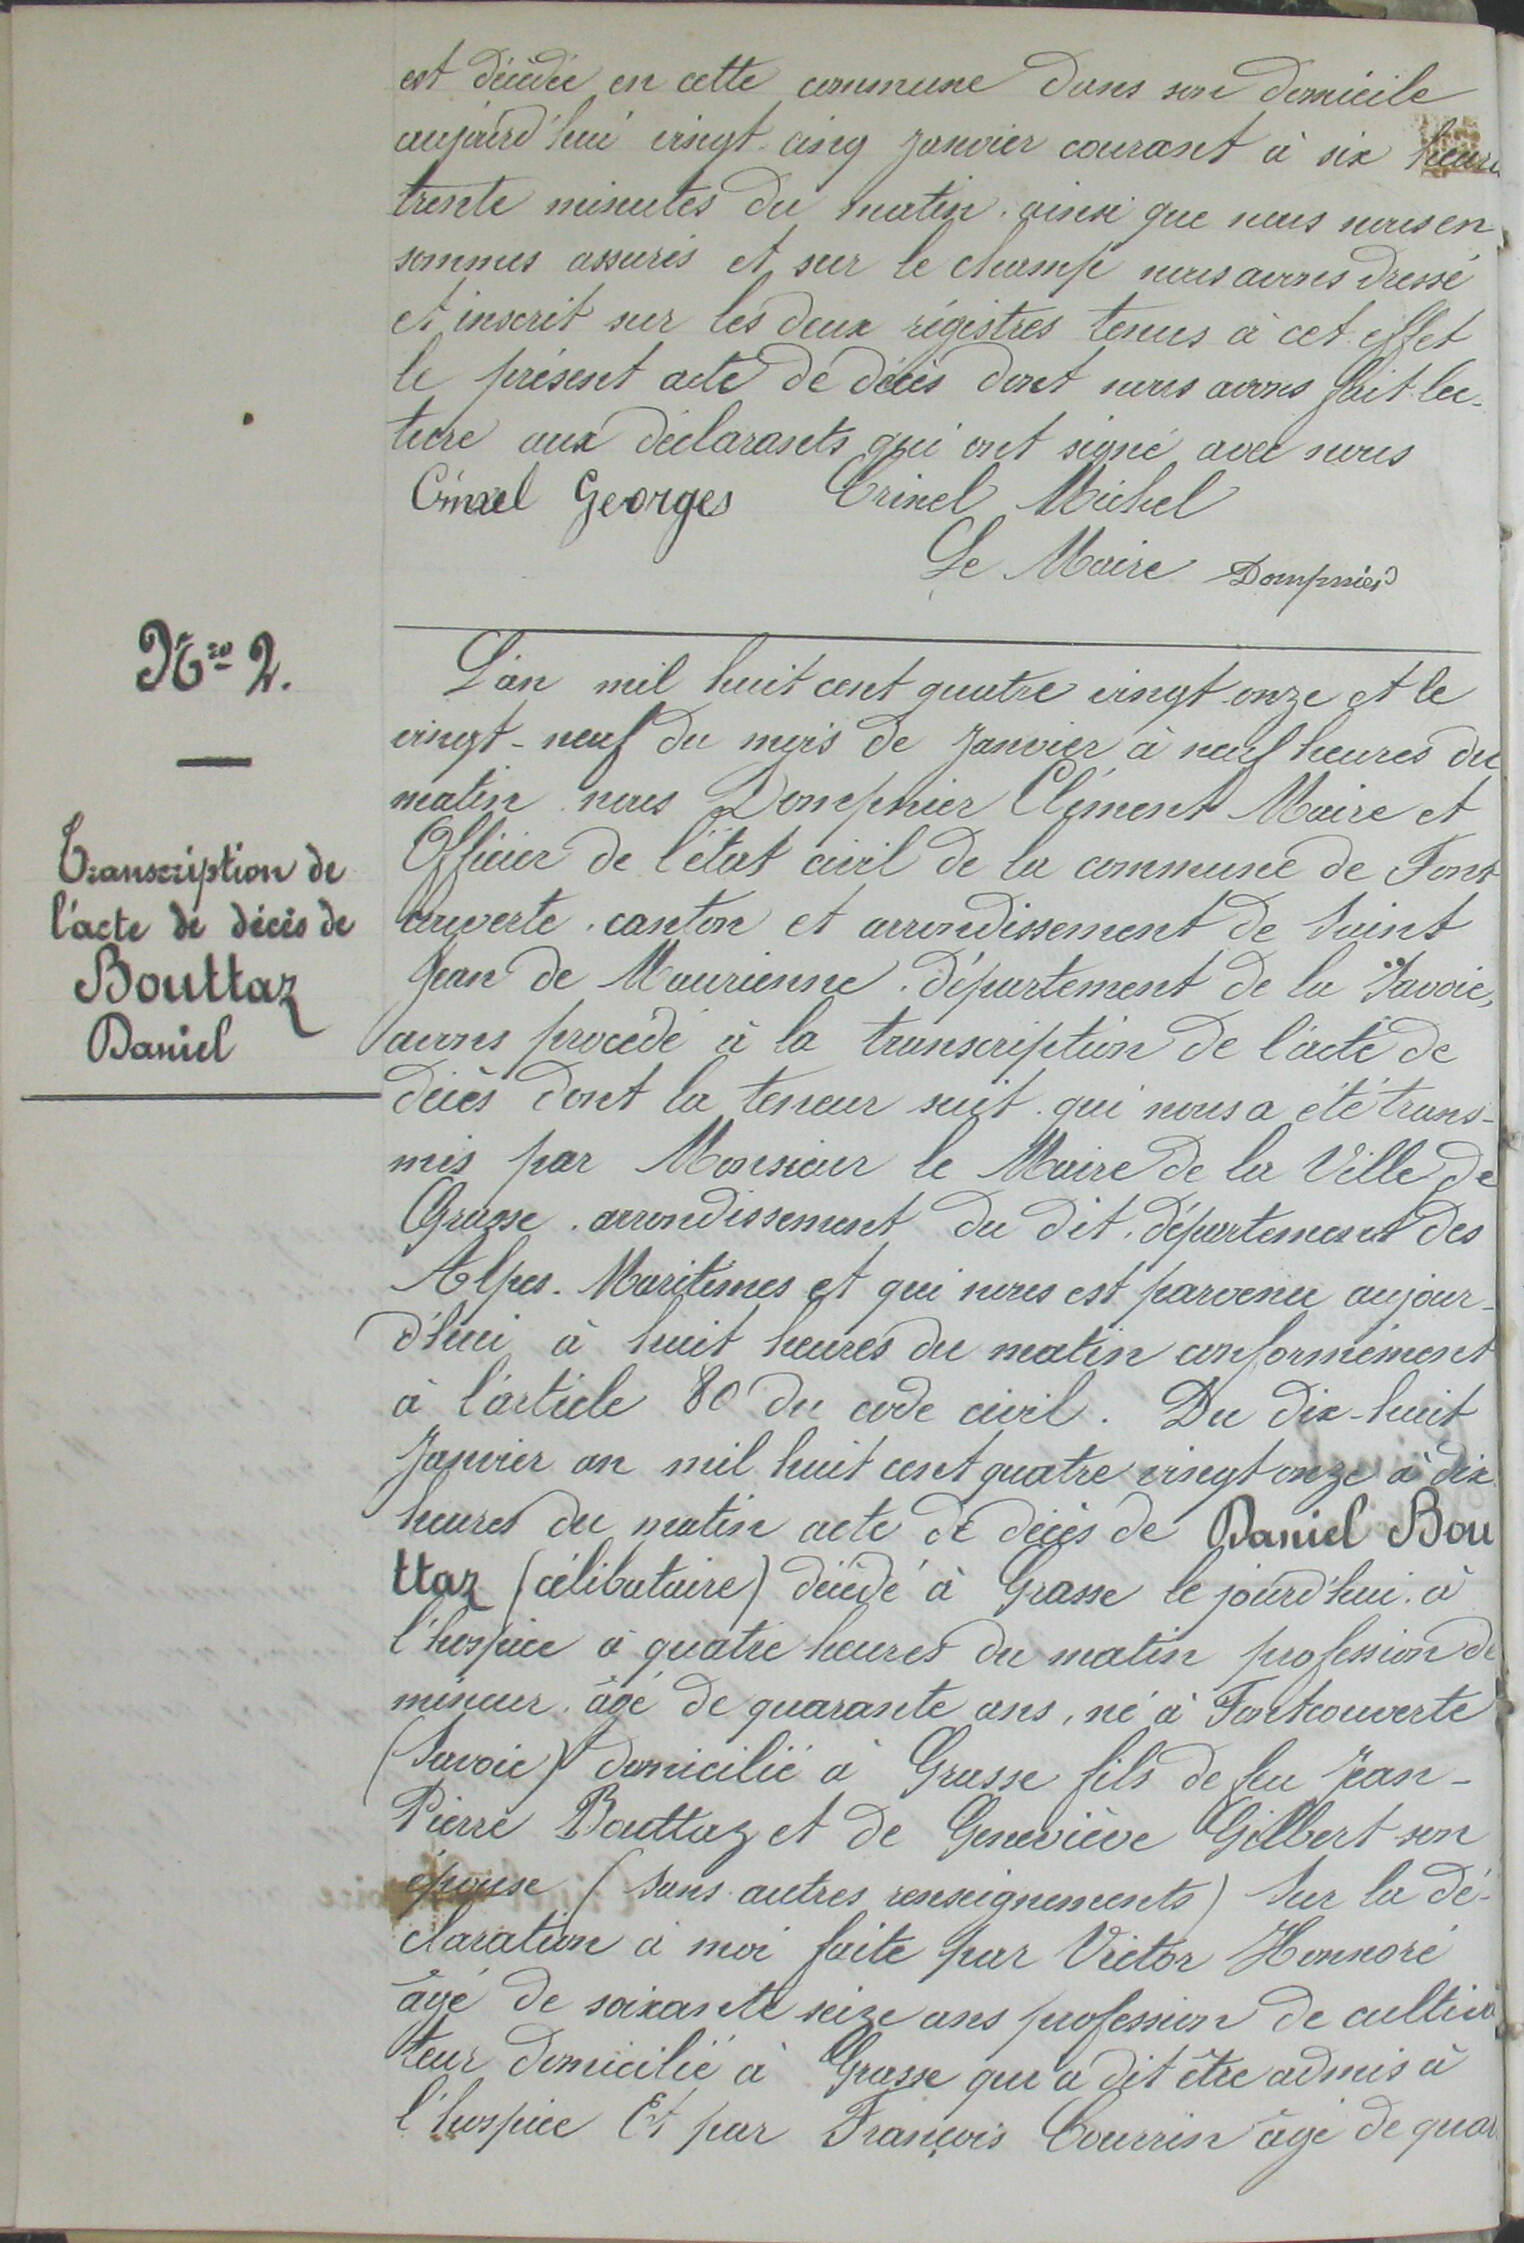 est décédée en cette commune dans son domicile
aujourd'hui vingt-cinq Janvier courant à six heures
trente minutes du matin. ainsi que nous nous en
sommes assurés et sur le champ nous avons dressé
et inscrit sur les deux régistres tenus à cet effet
le présent acte de décès dont nous avons fait lec-
ture aux déclarants qui ont signé avec nous
Crinel Georges Crinel Michel
Le Maire Dompnier
Nro 2.
Transcription de
l'acte de décès de
Bouttaz
Daniel
L'an mil huit cent quatre vingt onze et le
vingt-neuf du mois de Janvier à neuf heures du
matin nous Dompnier Clément Maire et
Officier de l'état civil de la commune de Font
couverte. canton et arrondissement de Saint
Jean de Maurienne. département de la Savoie,
avons procédé à la transcription de l'acte de
décès dont la teneur suit. qui nous a été trans-
mis par Monsieur le Maire de la Ville de
Grasse. arrondissement du dit. département des
Alpes-Maritimes et qui nous est parvenu aujour-
d'hui à huit heures du matin conformément
à l'article 80 du code civil. Du dix-huit
Janvier an mil huit cent quatre vingt onze à dix
heures du matin acte de décès de Daniel Bou
ttaz (célibataire) décédé à Grasse le jourd'hui. à
l'hospice à quatre heures du matin profession de
mineur. âgé de quarante ans, né à Fontcouverte
(Savoie) domicilié à Grasse fils de feu Jean-
Pierre Bouttaz et de Geneviève Gilbert son
épouse (sans autres renseignements) Sur la dé-
claration à moi faite par Victor Honnoré
âgé de soixante seize ans profession de cultiva
teur domicilié à Grasse qui a dit être admis à
l'hospice Et par François Courrin âgé de quar